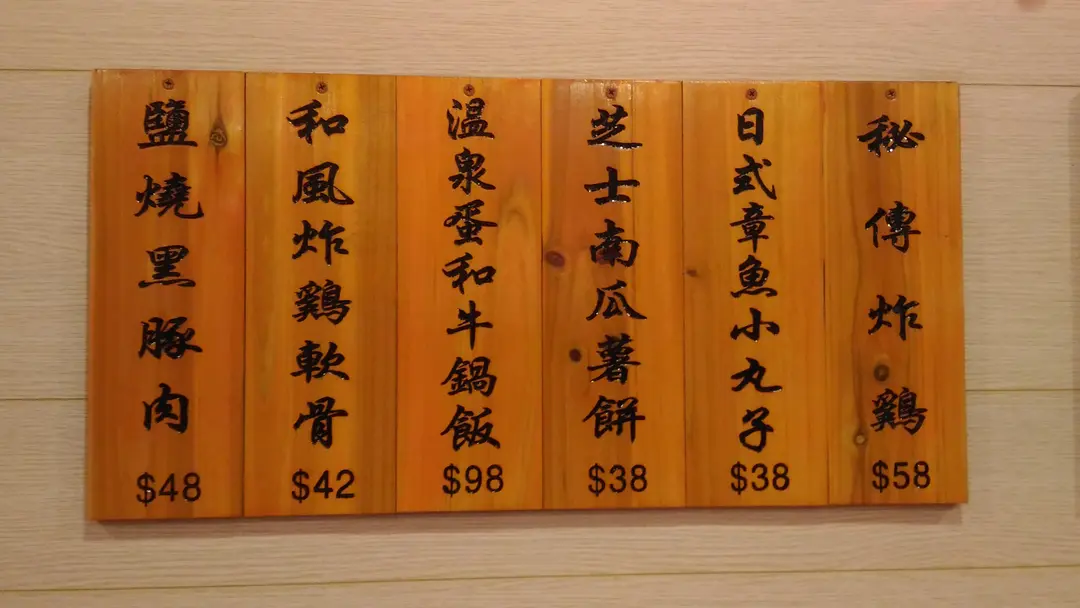 鹽燒黑豚肉
$48
和風炸鷄軟骨
$42
溫泉蛋和牛鍋飯
$98
芝士南瓜薯餅
$38
日式章魚小丸子
$38
秘傳炸鷄
$58